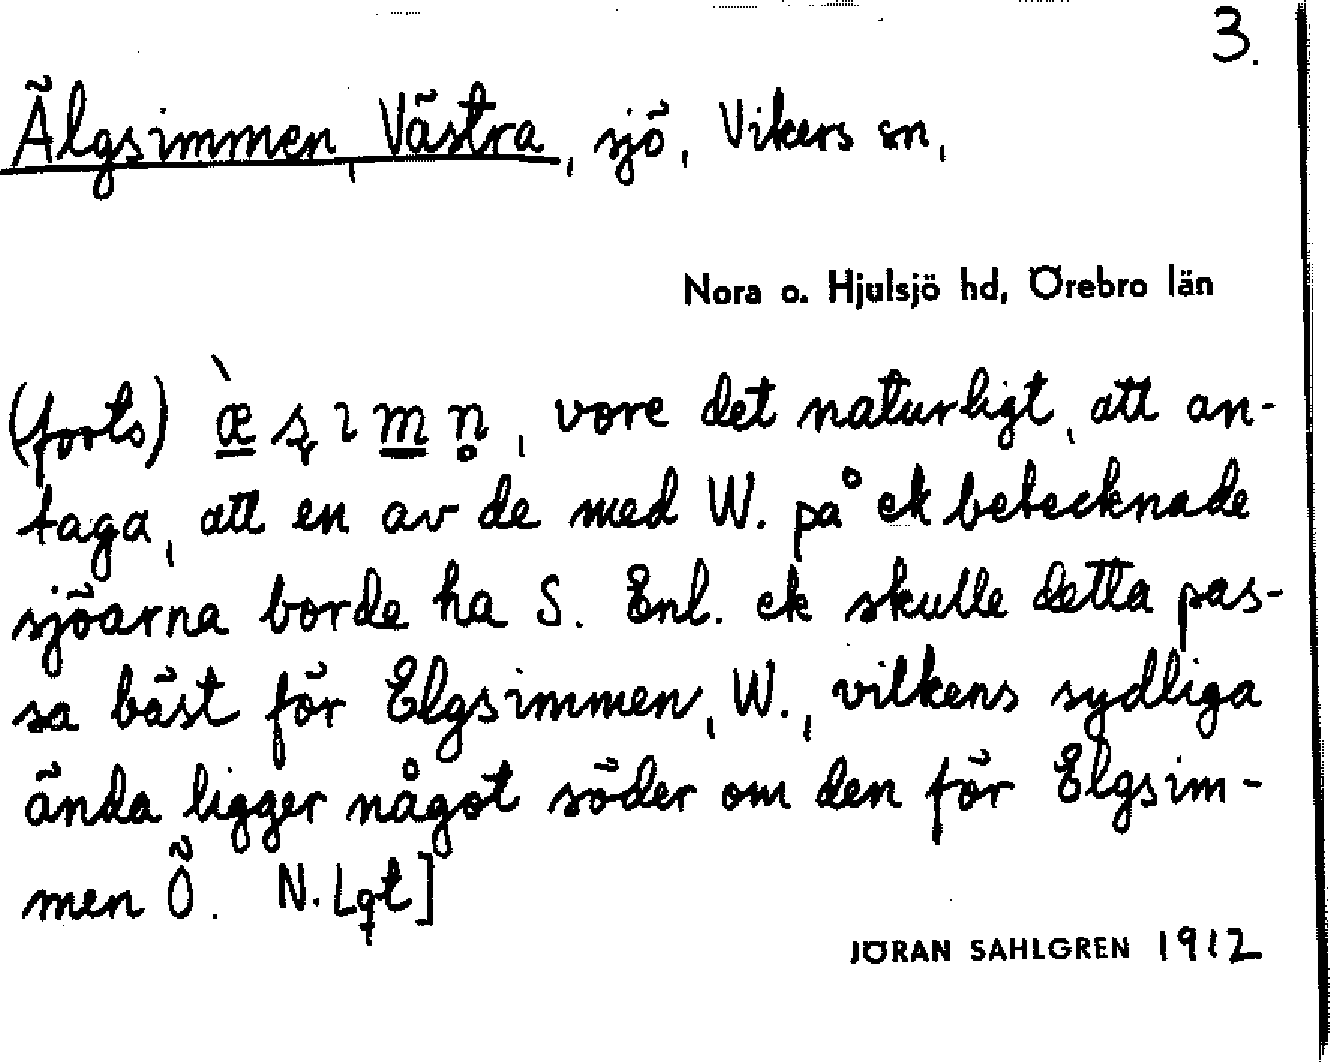 3.
Älgsimmen, Västra, sjö, Vikers sn,
Nora o. Hjulsjö hd, Örebro län
(forts) , vore det naturligt, att an-
taga, att en av de med W. på ek betecknade
sjöarna borde ha S. Enl. ek skulle detta pas-
sa bäst för Elgsimmen, W., vilkens sydliga
ända ligger något söder om den för Elgsim-
men Ö. N. Lqt]
JÖRAN SAHLGREN 1912